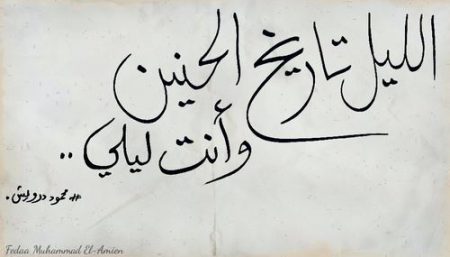 الليل تاريخ الحنين
وأنت ليلي ..
## محمود درويش.
Fedaa Muhammad El-Amien